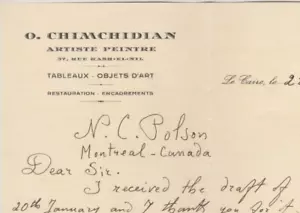 O. CHIMCHIDIAN
ARTISTE PEINTRE
37, RUE KASR-EL-NIL
TABLEAUX - OBJETS D'ART
Le Caire, le 2
RESTAURATION - ENCADREMENTS
N. C. Polson
Montreal - Canada
Dear Sir.
I received the draft of
20th January and I thank you for it